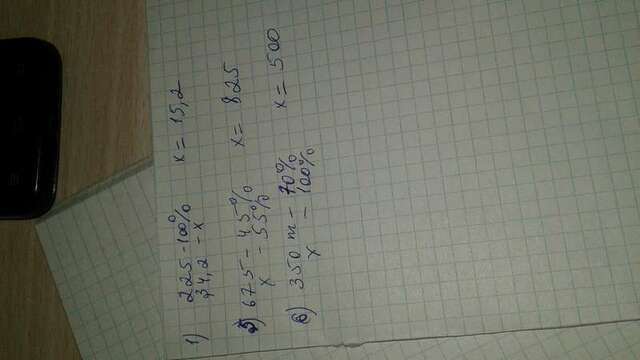 1) 225 - 100% x = 15,2
34,2 - x
5) 675 - 45% x = 825
x - 55%
6) 350 m - 70% x = 500
x - 100%